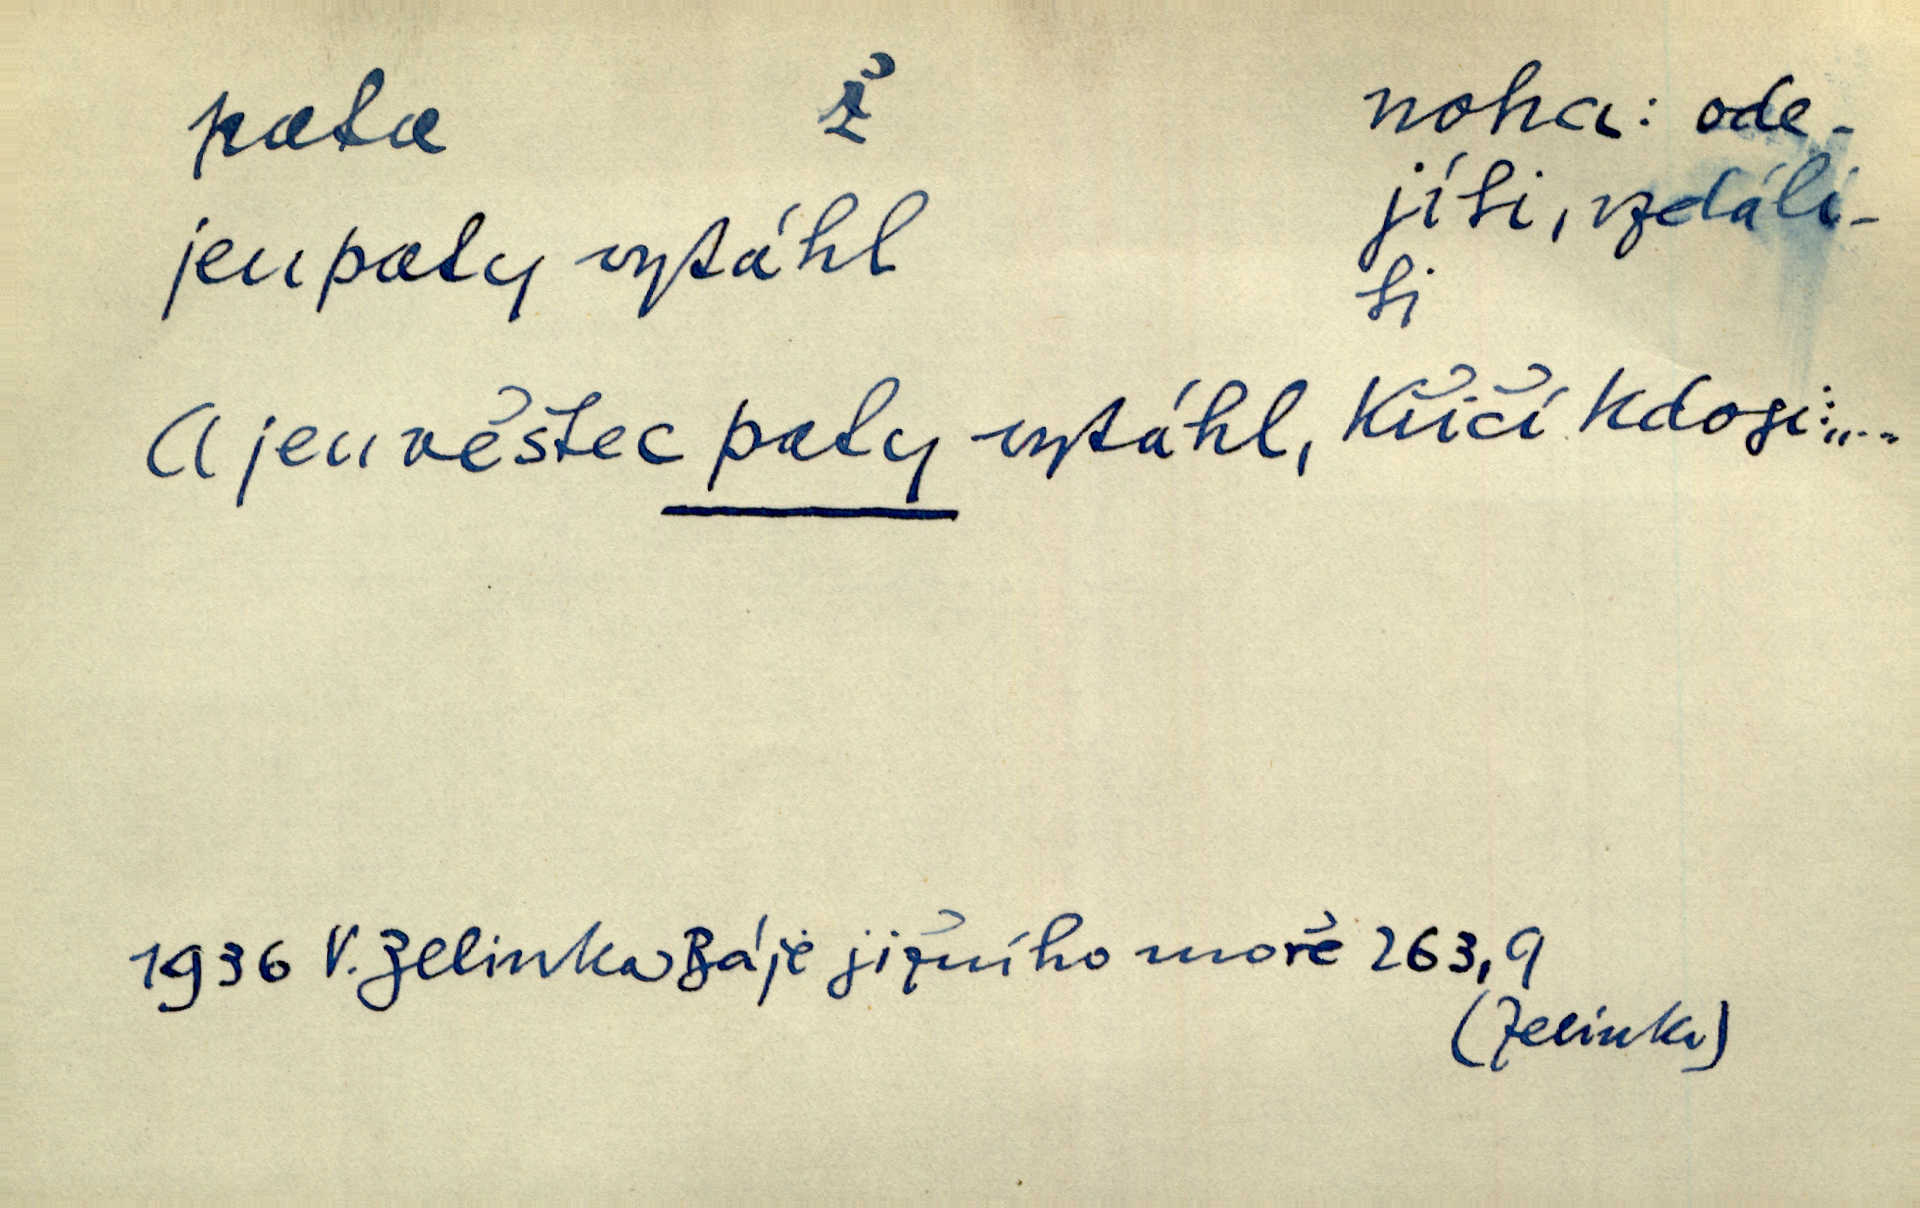 pata ž noha: ode-
jen paty vytáhl jíti, vzdáli-
ti
A jen věštec paty vytáhl, křičí kdosi: „...
1936 V. Zelinka Báje jižního moře 263, 9
(Zelinka)